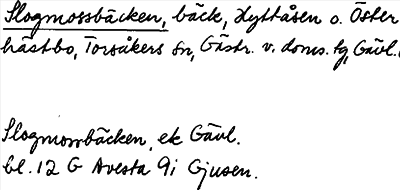 Slogmossbäcken, bäck, Hyttåsen o. Öster
hästbo, Torsåkers sn, Gästr. v. doms. tg, Gävl.
Slogmossbäcken, ek Gävl.
bl. 12 G Avesta 9i Gjusen.